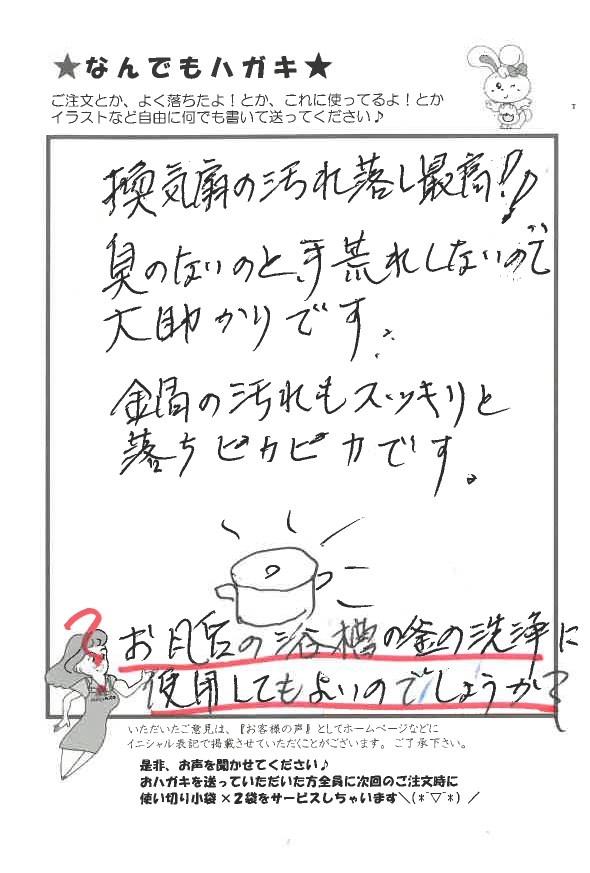 ★なんでもハガキ★
ご注文とか、よく落ちたよ！とか、これに使ってるよ！とか
イラストなど自由に何でも書いて送ってください♪
T
換気扇の汚れ落し最高!!
臭のないのと、手荒れしないので
大助かりです。
鍋の汚れもスッキリと
落ちピカピカです。
?
お風呂の浴槽の釜の洗浄に
使用してもよいのでしょうか?
いただいたご意見は、『お客様の声』としてホームページなどに
イニシャル表記で掲載させていただくことがございます。ご了承下さい。
是非、お声を聞かせてください♪
おハガキを送っていただいた方全員に次回のご注文時に
使い切り小袋×2袋をサービスしちゃいます＼(*￣▽￣*)／